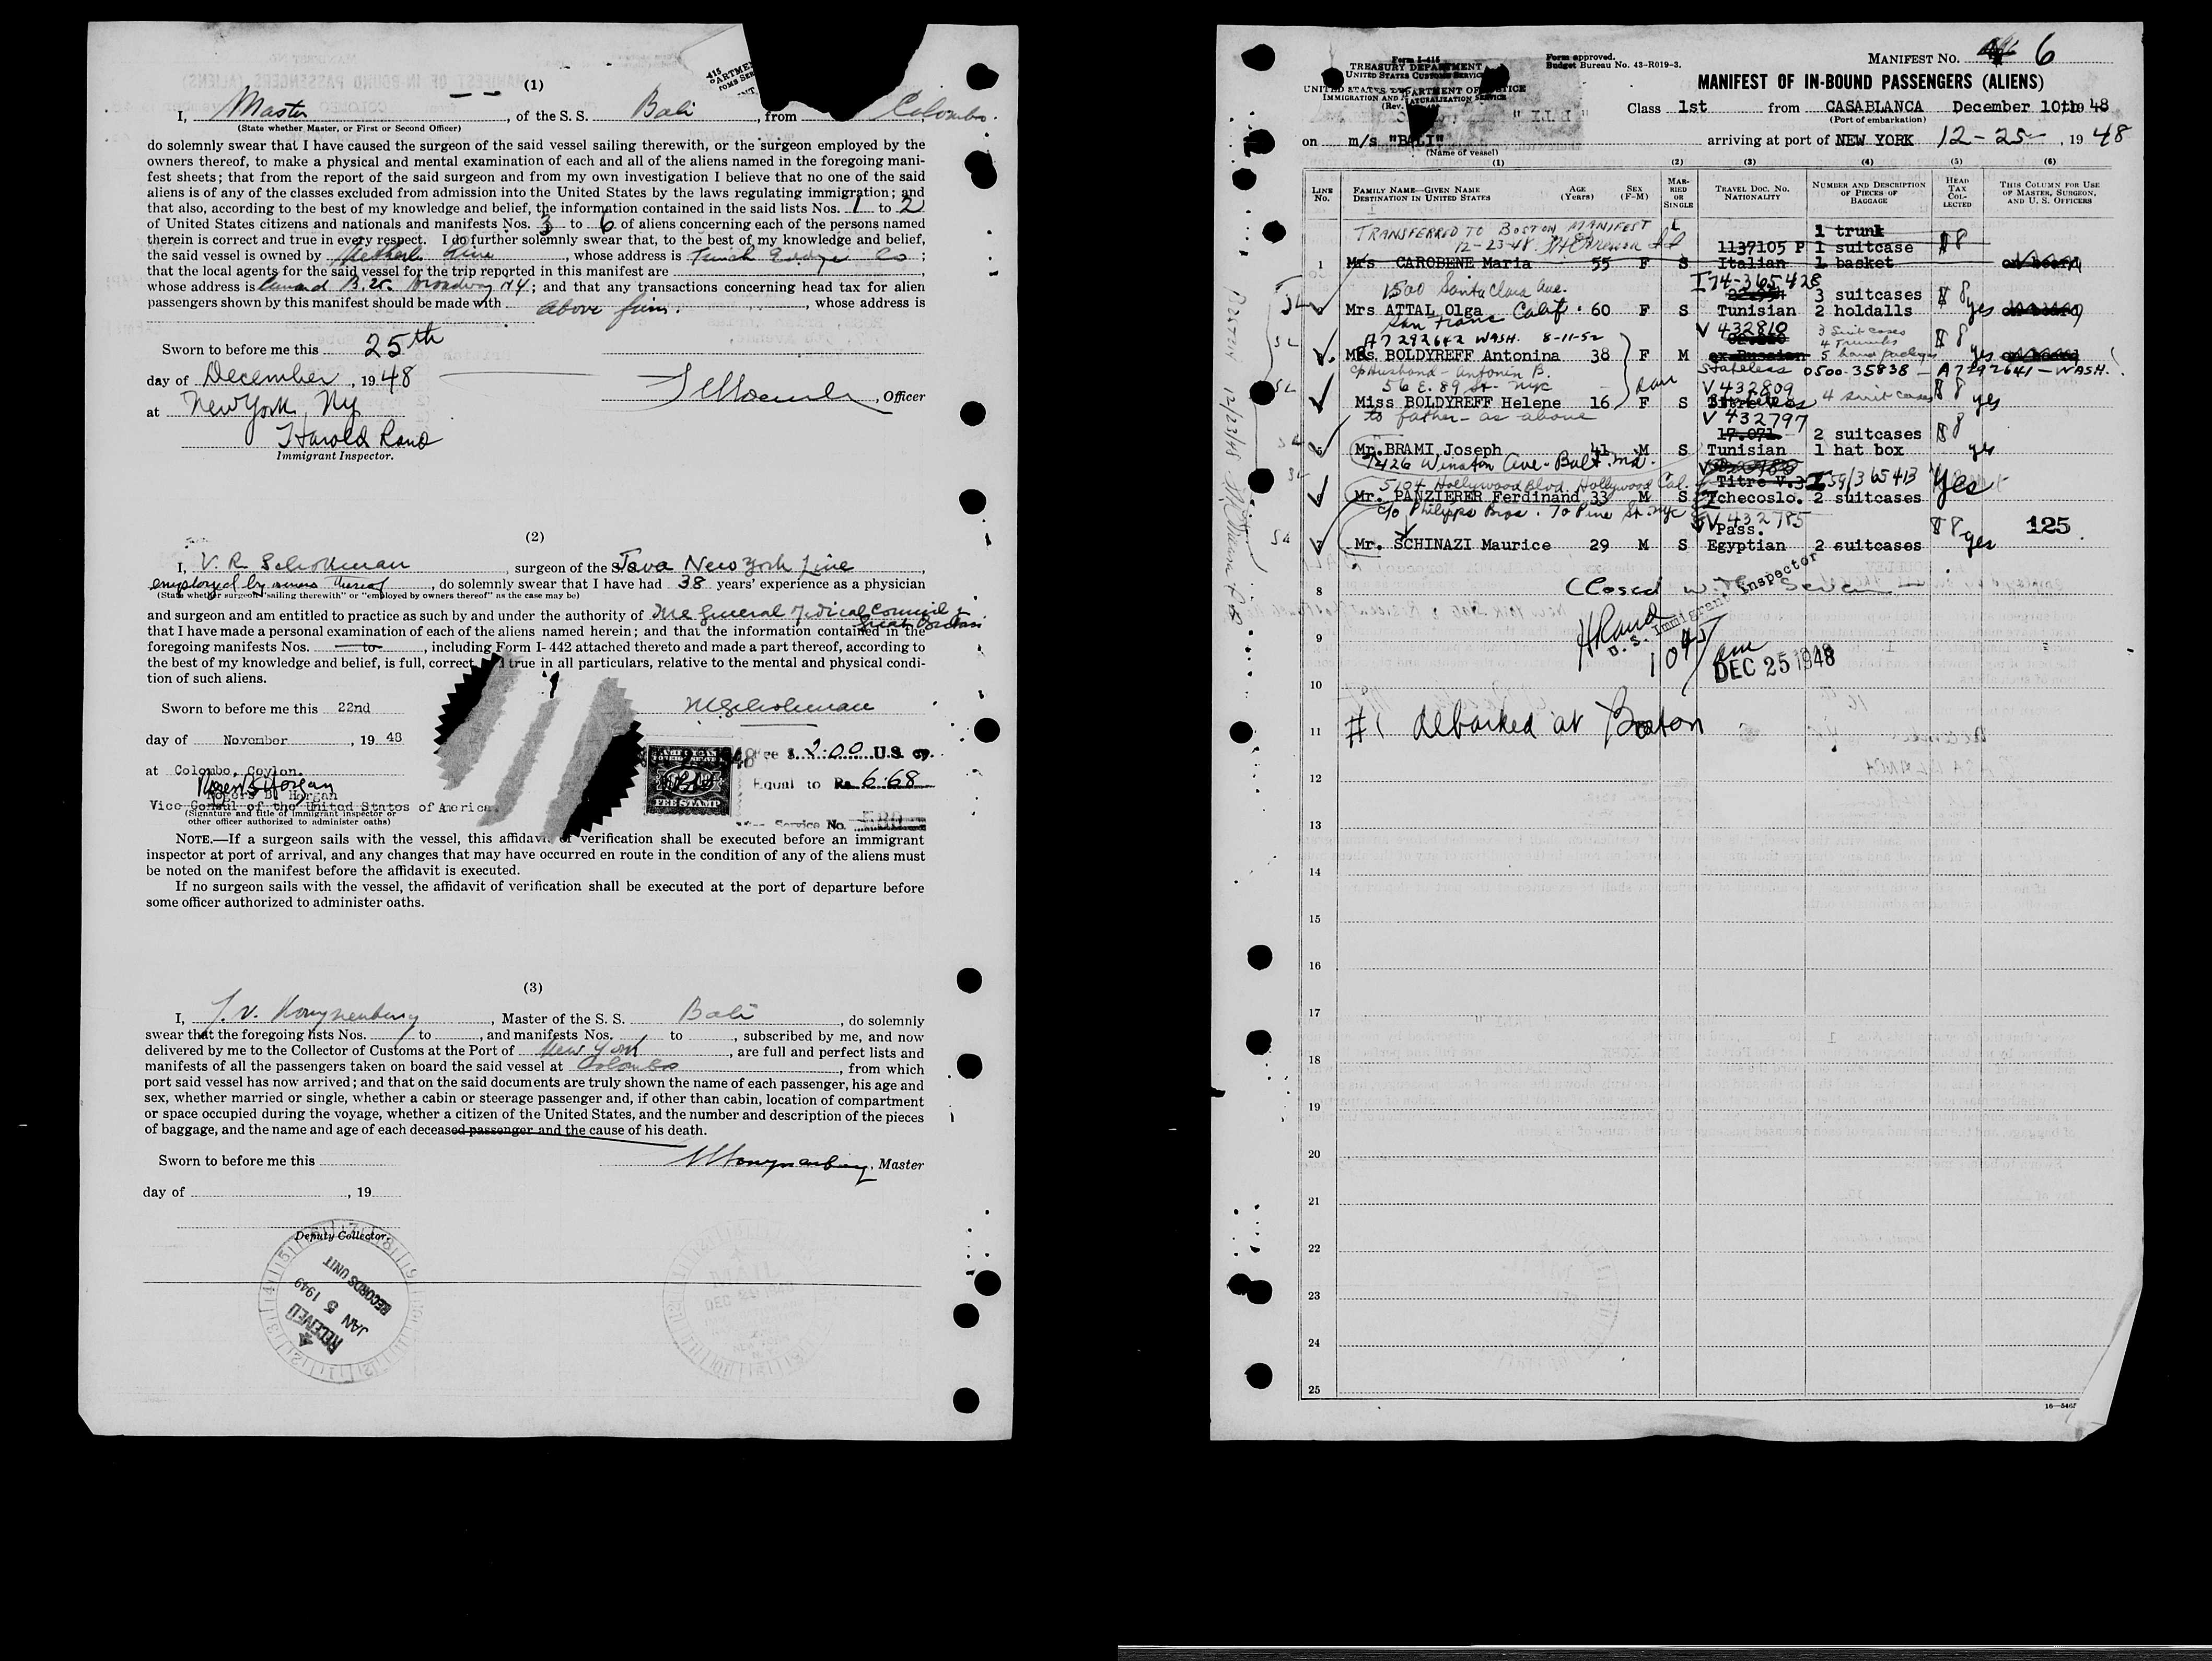 (1)
I, Master, of the S. S. Bali, from Colombo.
(State whether Master, or First or Second Officer)
do solemnly swear that I have caused the surgeon of the said vessel sailing therewith, or the surgeon employed by the
owners thereof, to make a physical and mental examination of each and all of the aliens named in the foregoing mani-
fest sheets; that from the report of the said surgeon and from my own investigation I believe that no one of the said
aliens is of any of the classes excluded from admission into the United States by the laws regulating immigration; and
that also, according to the best of my knowledge and belief, the information contained in the said lists Nos. 1 to 2
of United States citizens and nationals and manifests Nos. 3 to 6 of aliens concerning each of the persons named
therein is correct and true in every respect. I do further solemnly swear that, to the best of my knowledge and belief,
the said vessel is owned by Line, whose address is Funch Edye Co;
that the local agents for the said vessel for the trip reported in this manifest are
whose address is Cunard B. 25 Broadway NY; and that any transactions concerning head tax for alien
passengers shown by this manifest should be made with above firm., whose address is
Sworn to before me this 25th
day of December, 1948
, Officer
at New York, NY
Harold Rand
Immigrant Inspector.
(2)
I, V. R. Schokman, surgeon of the S Java New York Line,
employed by owners thereof, do solemnly swear that I have had 38 years' experience as a physician
(State whether surgeon "sailing therewith" or "employed by owners thereof" as the case may be)
and surgeon and am entitled to practice as such by and under the authority of The General Medical Council of Great Britain
that I have made a personal examination of each of the aliens named herein; and that the information contained in the
foregoing manifests Nos. to, including Form I-442 attached thereto and made a part thereof, according to
the best of my knowledge and belief, is full, correct true in all particulars, relative to the mental and physical condi-
tion of such aliens.
Sworn to before me this 22nd
day of November, 19 48
at Colombo, Ceylon.
Fee $ 2.00 U.S. cy.
Equal to Rs. 6.68
Service No. 580
FEE STAMP
Horgan
Vice Consul of the United States of America
(Signature and title of immigrant inspector or
other officer authorized to administer oaths)
NOTE.—If a surgeon sails with the vessel, this affidavit of verification shall be executed before an immigrant
inspector at port of arrival, and any changes that may have occurred en route in the condition of any of the aliens must
be noted on the manifest before the affidavit is executed.
If no surgeon sails with the vessel, the affidavit of verification shall be executed at the port of departure before
some officer authorized to administer oaths.
(3)
I, J. v. Konynenburg, Master of the S. S. Bali, do solemnly
swear that the foregoing lists Nos. to, and manifests Nos. to, subscribed by me, and now
delivered by me to the Collector of Customs at the Port of New York, are full and perfect lists and
manifests of all the passengers taken on board the said vessel at Colombo, from which
port said vessel has now arrived; and that on the said documents are truly shown the name of each passenger, his age and
sex, whether married or single, whether a cabin or steerage passenger and, if other than cabin, location of compartment
or space occupied during the voyage, whether a citizen of the United States, and the number and description of the pieces
of baggage, and the name and age of each deceased passenger and the cause of his death.
Sworn to before me this
, Master
day of, 19
Deputy Collector.
RECEIVED
JAN 5 1949
RECORDS UNIT
Form I-415
TREASURY DEPARTMENT
UNITED STATES CUSTOMS SERVICE
UNITED STATES DEPARTMENT OF JUSTICE
IMMIGRATION AND NATURALIZATION SERVICE
Form approved.
Budget Bureau No. 43-R019-3.
MANIFEST NO. 6
MANIFEST OF IN-BOUND PASSENGERS (ALIENS)
Class 1st from CASABLANCA December 10th 1948
(Port of embarkation)
on m/s "BALI" arriving at port of NEW YORK 12-25-, 1948
(Name of vessel)
(1) (2) (3) (4) (5) (6)
LINE NO. FAMILY NAME—GIVEN NAME DESTINATION IN UNITED STATES AGE (Years) SEX (F-M) MARRIED OR SINGLE TRAVEL DOC. NO. NATIONALITY NUMBER AND DESCRIPTION OF PIECES OF BAGGAGE HEAD TAX COLLECTED THIS COLUMN FOR USE OF MASTER, SURGEON, AND U. S. OFFICERS
TRANSFERRED TO BOSTON MANIFEST
12-23-48
1 trunk
1137105 P 1 suitcase $8
1 Mrs CAROBENE Maria 55 F S Italian 1 basket
I 74-365428
1500 Santa Clara Ave. 3 suitcases $8
Mrs ATTAL Olga Calif. 60 F S Tunisian 2 holdalls yes
San Franc
V 432810 3 Suit cases $8
A7292642 WASH. 8-11-52 4 Trunks
Mrs. BOLDYREFF Antonina 38 F M ex Russian 5 hand packages yes
c/o Husband - Antonin B. Stateless 0500-35838 - A7292641 - WASH.
56 E. 89 St. NYC V 432809 $8
Miss BOLDYREFF Helene 16 F S 4 suit cases yes
to father - as above V 432797
17.071. 2 suitcases $8
5 Mr. BRAMI Joseph 41 M S Tunisian 1 hat box yes
7426 Winston Ave. Balt. Md.
5104 Hollywood Blvd. Hollywood Cal. Titre V.3 I 59/365413 Yes
6 Mr. PANZIERER Ferdinand 33 M S Tchecoslo. 2 suitcases
c/o Philipps Bros. 70 Pine St. NYC V 432785
Pass. $8 125
7 Mr. SCHINAZI Maurice 29 M S Egyptian 2 suitcases yes
8 Closed with Seven
H Rand
U. S. Immigrant Inspector
9
1045 am
DEC 25 1948
10
11 #1 debarked at Boston
12
13
14
15
16
17
18
19
20
21
22
23
24
25